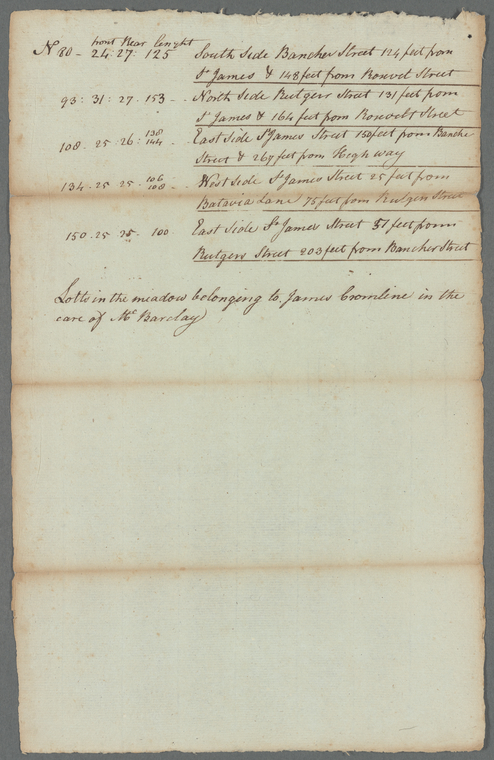 front Rear lenght
No 80 - 24: 27: 125 South Side Bancker Street 124 feet from
St James & 148 feet from Rosvet Street
93: 31: 27 - 153 - North Side Rutgers Street 131 feet from
St James & 164 feet from Roosvelt Street
108 - 25 - 26: 138 144 - East Side St James Street 150 feet from Bancke
Street & 269 feet from High way
134 - 25 25 - 106 108 - West Side St James Street 25 feet from
Batavia Lane 75 feet from Rutgers Street
150 - 25 25 - 100 East Side St James Street 51 feet from
Rutgers Street 203 feet from Bancker Street
Lotts in the meadow belonging to James Cromline in the
care of Mr Barclay